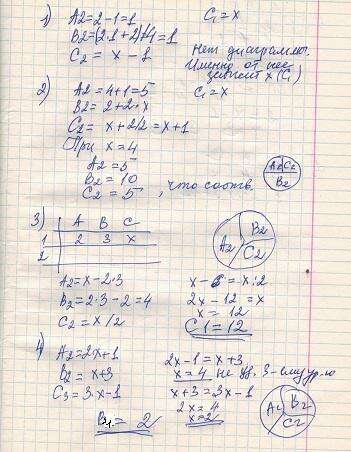 1) A2=2-1=1 C1=x
B2=(2·1+2)/4=1
C2= x-1 Нет диаграммы.
Именно от нее
зависит x (C1)
2) A2=4+1=5 C1=x
B2=2+2·x
C2= x+2/2=x+1
При x=4
A2=5
B2=10
C2=5, что соотв.
A2 C2
B2
3) A B C
1 2 3 x
2
A2 B2
C2
A2=x-2·3 x-6=x:2
B2=2·3-2=4 2x-12=x
C2=x/2 x=12
C1=12
4) A2=2x+1 2x-1=x+3
B2=x+3 x=4 не уд. 3-ему ур-ю
C3=3·x-1 x+3=3x-1
2x=4
B1=2 x=2
A2 B2
C2